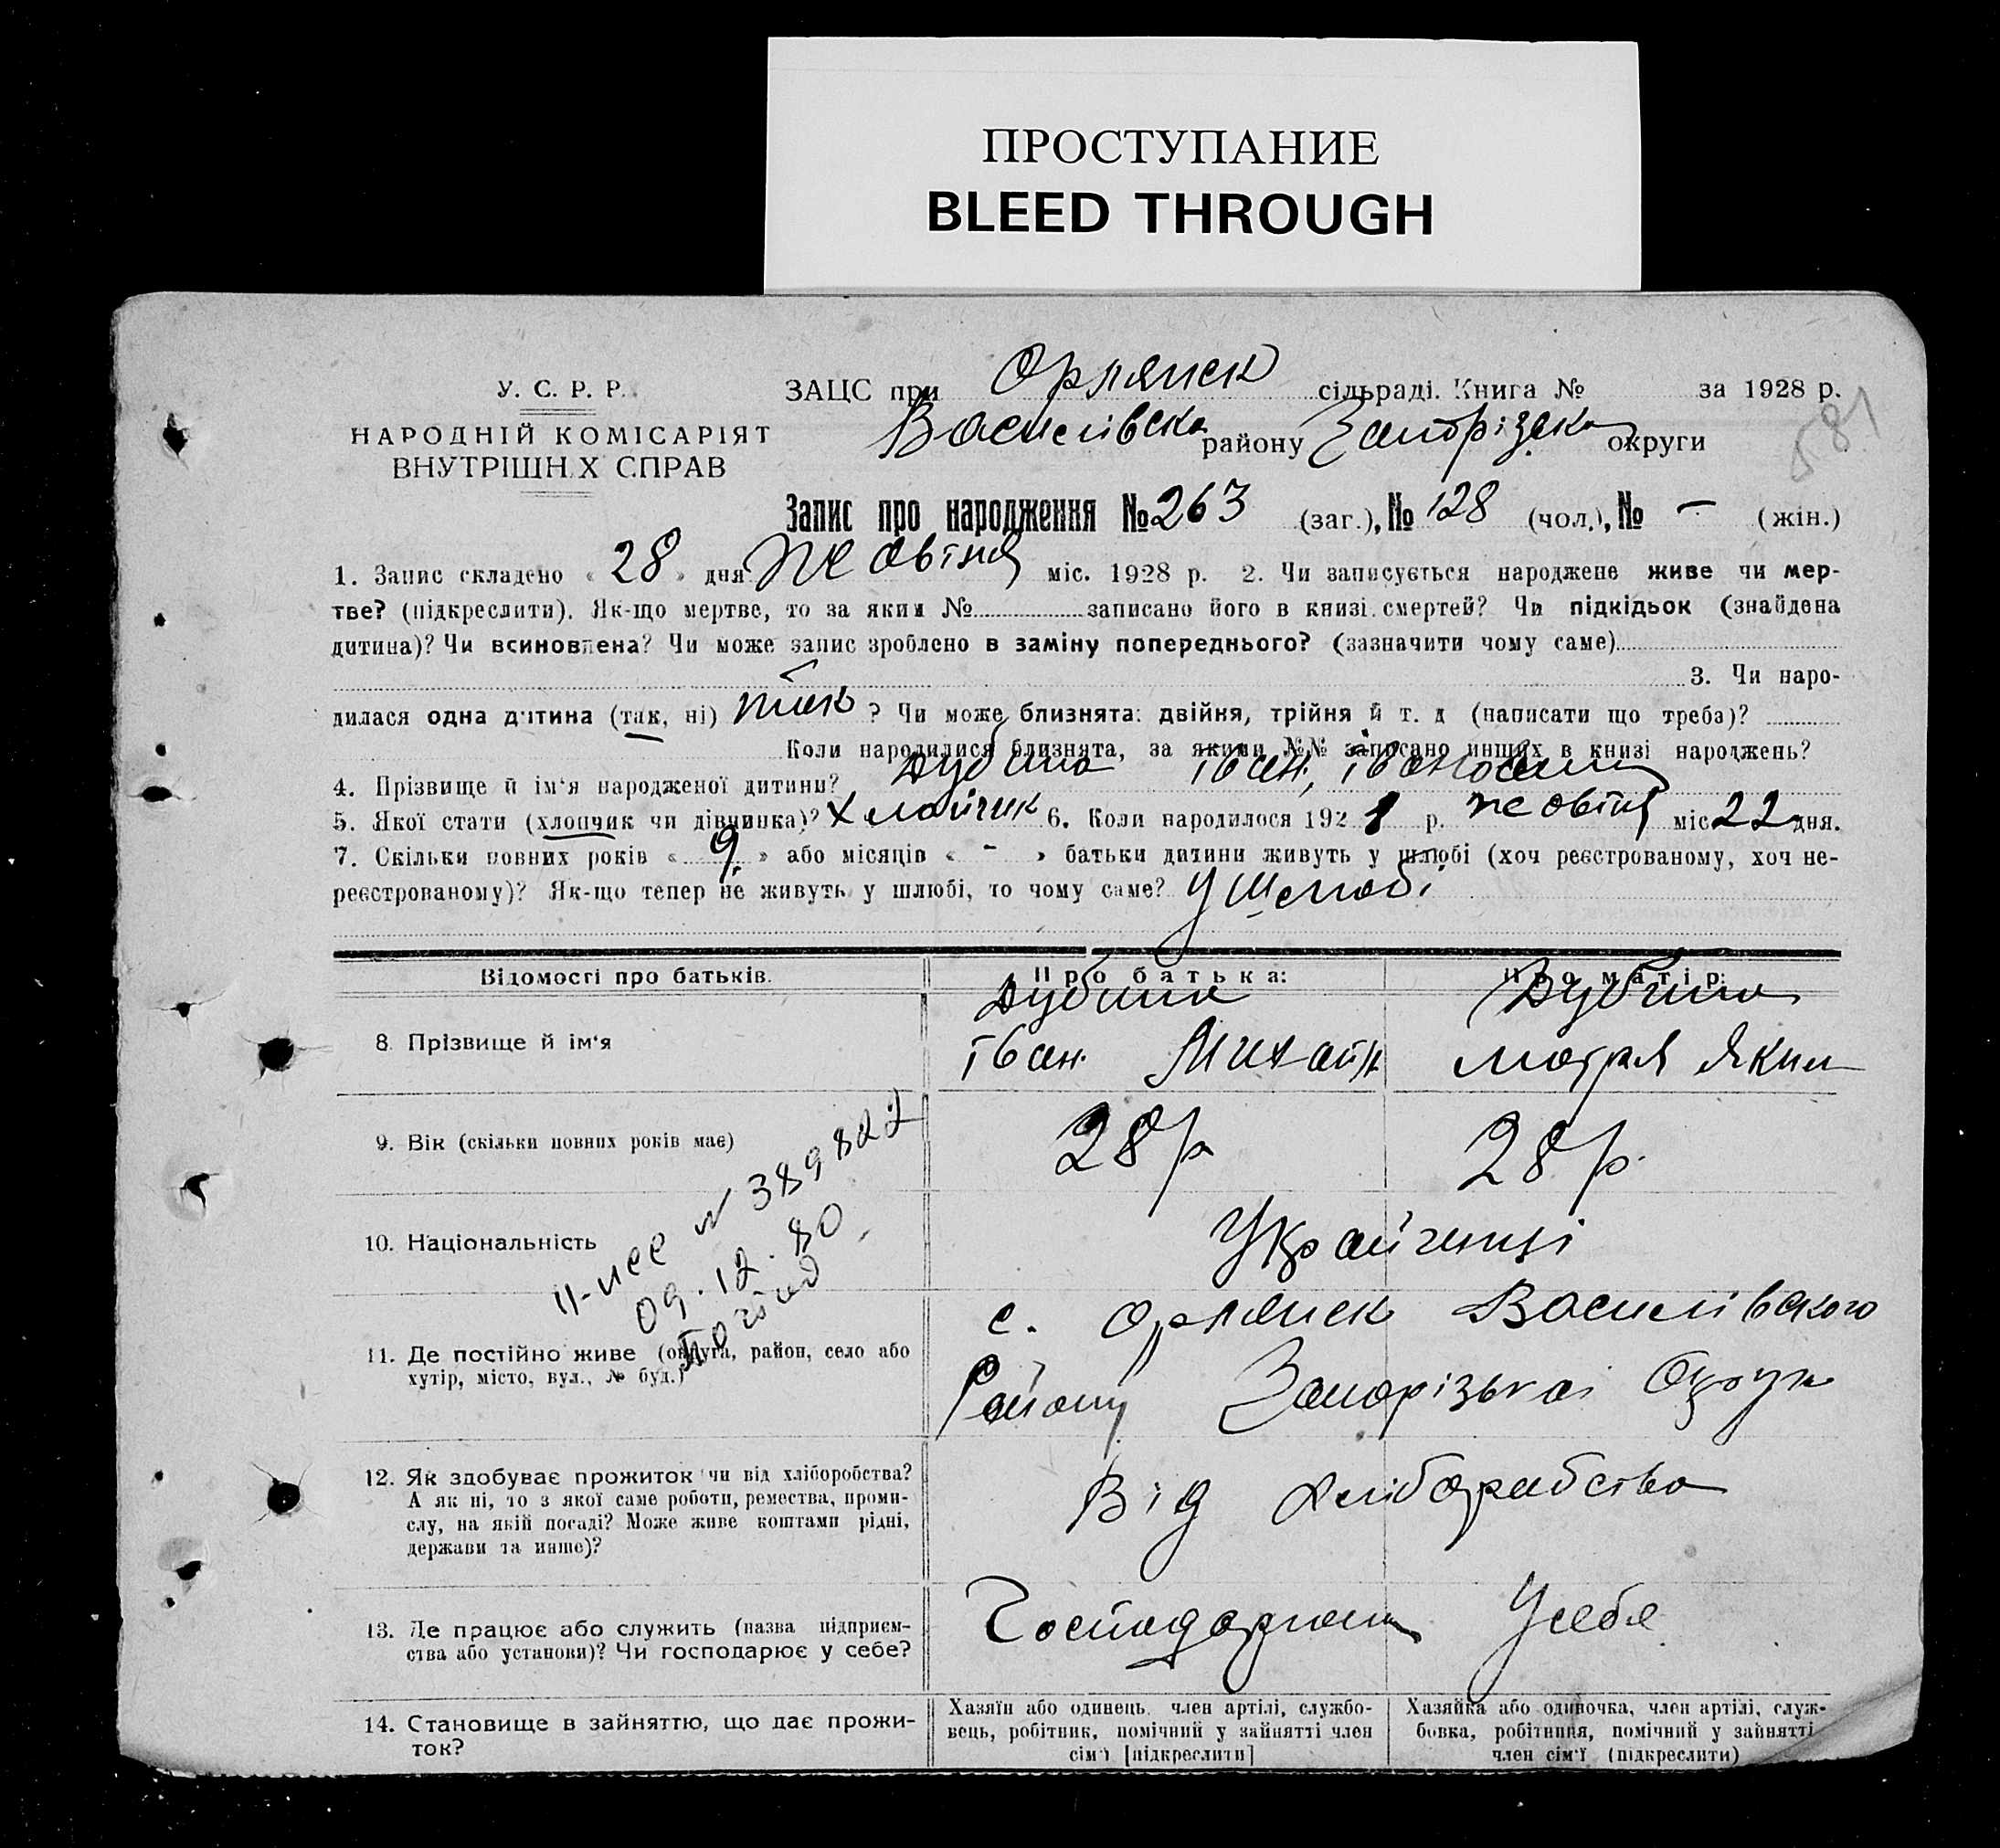 ПРОСТУПАНИЕ
BLEED THROUGH
У. С. Р. Р.
НАРОДНІЙ КОМІСАРІЯТ
ВНУТРІШН.Х СПРАВ
ЗАЦС при Орлянск сільраді. Книга № за 1928 р.
Василівска району Запорізска округи
581
Запис про народження № 263 (заг.), № 128 (чол.), № – (жін.)
1. Запис складено « 28 » дня жовтня міс. 1928 р. 2. Чи записується народжене живе чи мер-
тве? (підкреслити). Як-що мертве, то за яким № записано його в книзі смертей? Чи підкідьок (знайдена
дитина)? Чи всиновлена? Чи може запис зроблено в заміну попереднього? (зазначити чому саме)
3. Чи наро-
дилася одна дитина (так, ні) так ? Чи може близнята: двійня, трійня й т. д (написати що треба)?
Коли народилися близнята, за якими №№ записано инших в книзі народжень?
4. Прізвище й ім'я народженої дитини? Дубина Іван, Іванович
5. Якої стати (хлопчик чи дівчинка)? Хлопчик 6. Коли народилося 1928 р. жовтня міс 22 дня.
7. Скільки повних років « 9 » або місяців « - » батьки дитини живуть у шлюбі (хоч реєстрованому, хоч не-
реєстрованому)? Як-що тепер не живуть у шлюбі, то чому саме? У шлюбі
Відомості про батьків. Про батька: Про матір:
8. Прізвище й ім'я
Дубина
Іван Михайл
Дубина
Мотря Яким
9. Вік (скільки повних років має) 28 р 28 р.
10. Національність Українці
№ 389822
09.12.80
11. Де постійно живе (округа, район, село або
хутір, місто, вул., № буд.)
с. Орлянск Василівского
Району Запорізькоі Округ
12. Як здобуває прожиток чи від хліборобства?
А як ні, то з якої саме роботи, ремества, проми-
слу, на якій посаді? Може живе коштами рідні,
держави та инше)?
Від хліборобства
13. Де працює або служить (назва підприєм-
ства або установи)? Чи господарює у себе?
Усебе
14. Становище в зайняттю, що дає прожи-
ток?
Хазяїн або одинець, член артілі, службо-
вець, робітник, помічний у зайнятті член
сім'ї [підкреслити]
Хазяйка або одиночка, член артілі, служ-
бовка, робітниця, помічний у зайнятті
член сім'ї (підкреслити)